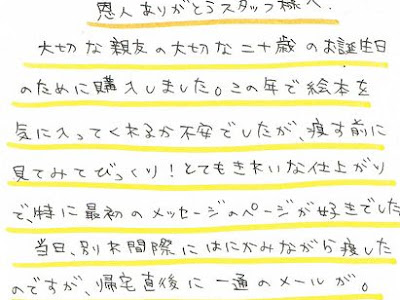 恩人ありがとうスタッフ様へ.
大切な親友の大切な二十歳のお誕生日
のために購入しました。この年で絵本を
気に入ってくれるか不安でしたが、渡す前に
見てみてびっくり！とてもきれいな仕上がり
で、特に最初のメッセージのページが好きでした
当日、別れ間際にはにかみながら渡した
のですが、帰宅直後に一通のメールが。